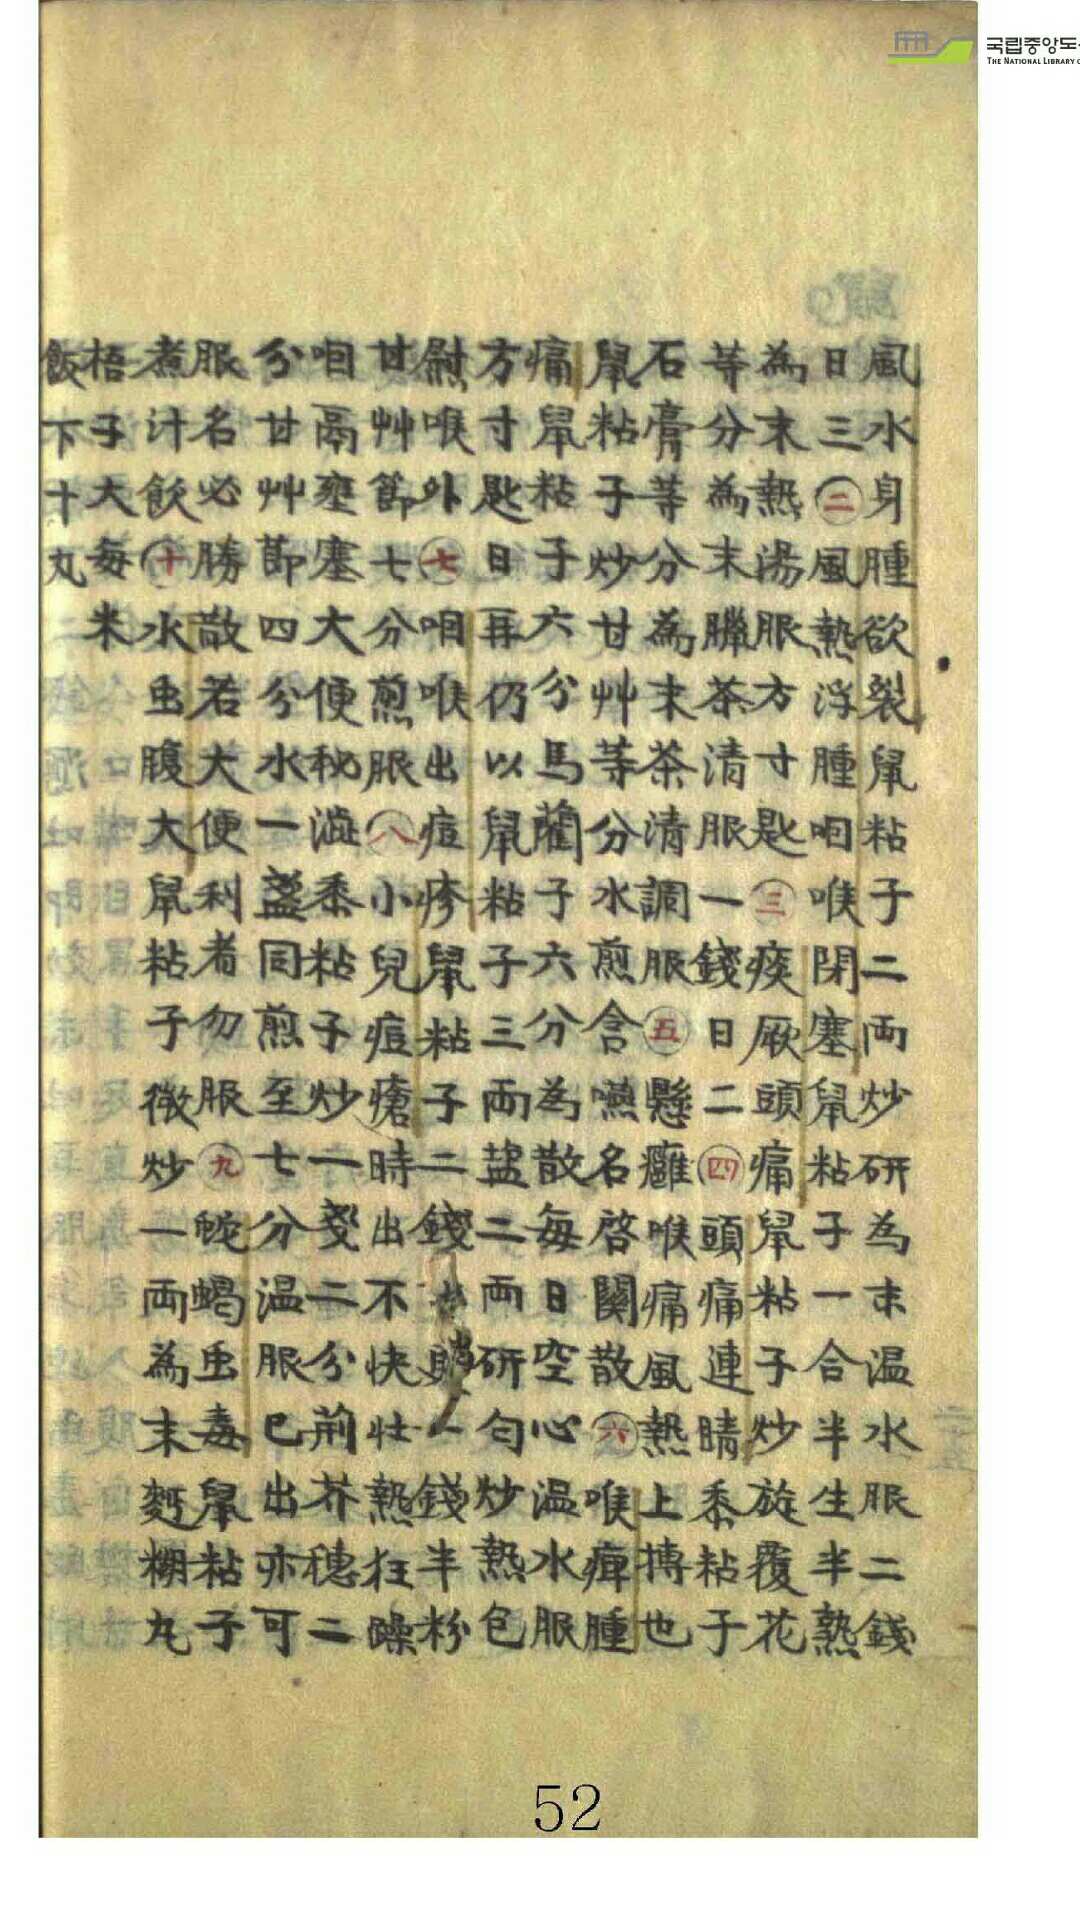 국립중앙도
THE NATIONAL LIBRARY
風水身腫欲裂䑕粘子二両炒研為末温水服二錢
日三㊁風熱浮腫咽喉閉塞䑕粘子一合半生半熟
為末熱湯服方寸匙㊂痰厥頭痛䑕粘子炒旋覆花
等分為末臘茶清服一錢日二㊃頭痛連睛黍粘子
石膏等分為末茶清調服㊄懸癰喉痛風熱上搏也
䑕粘子炒甘艸等分水煎含嚥名啓関散㊅喉痺腫
痛䑕粘子六分馬藺子六分為散每日空心温水服
方寸匙日再仍以䑕粘子三両盐二両研匀炒熱包
熨喉外㊆咽喉出痘疹䑕粘子二錢一錢半粉
甘艸節七分煎服㊇小兒痘瘡時出不快壮熱狂躁
咽鬲壅塞大便秘澁黍粘子炒一戔二分荊芥穗二
分甘艸節四分水一盞同煎至七分温服已出亦可
服名必勝散若大便利者勿服㊈蛇蝎虫毒䑕粘子
煮汁飲㊉水虫腹大䑕粘子微炒一両為末麪糊丸
梧子大每米
飯下十丸
52